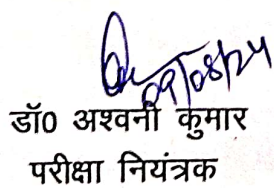 09/08/24
डॉ0 अश्वनी कुमार
परीक्षा नियंत्रक